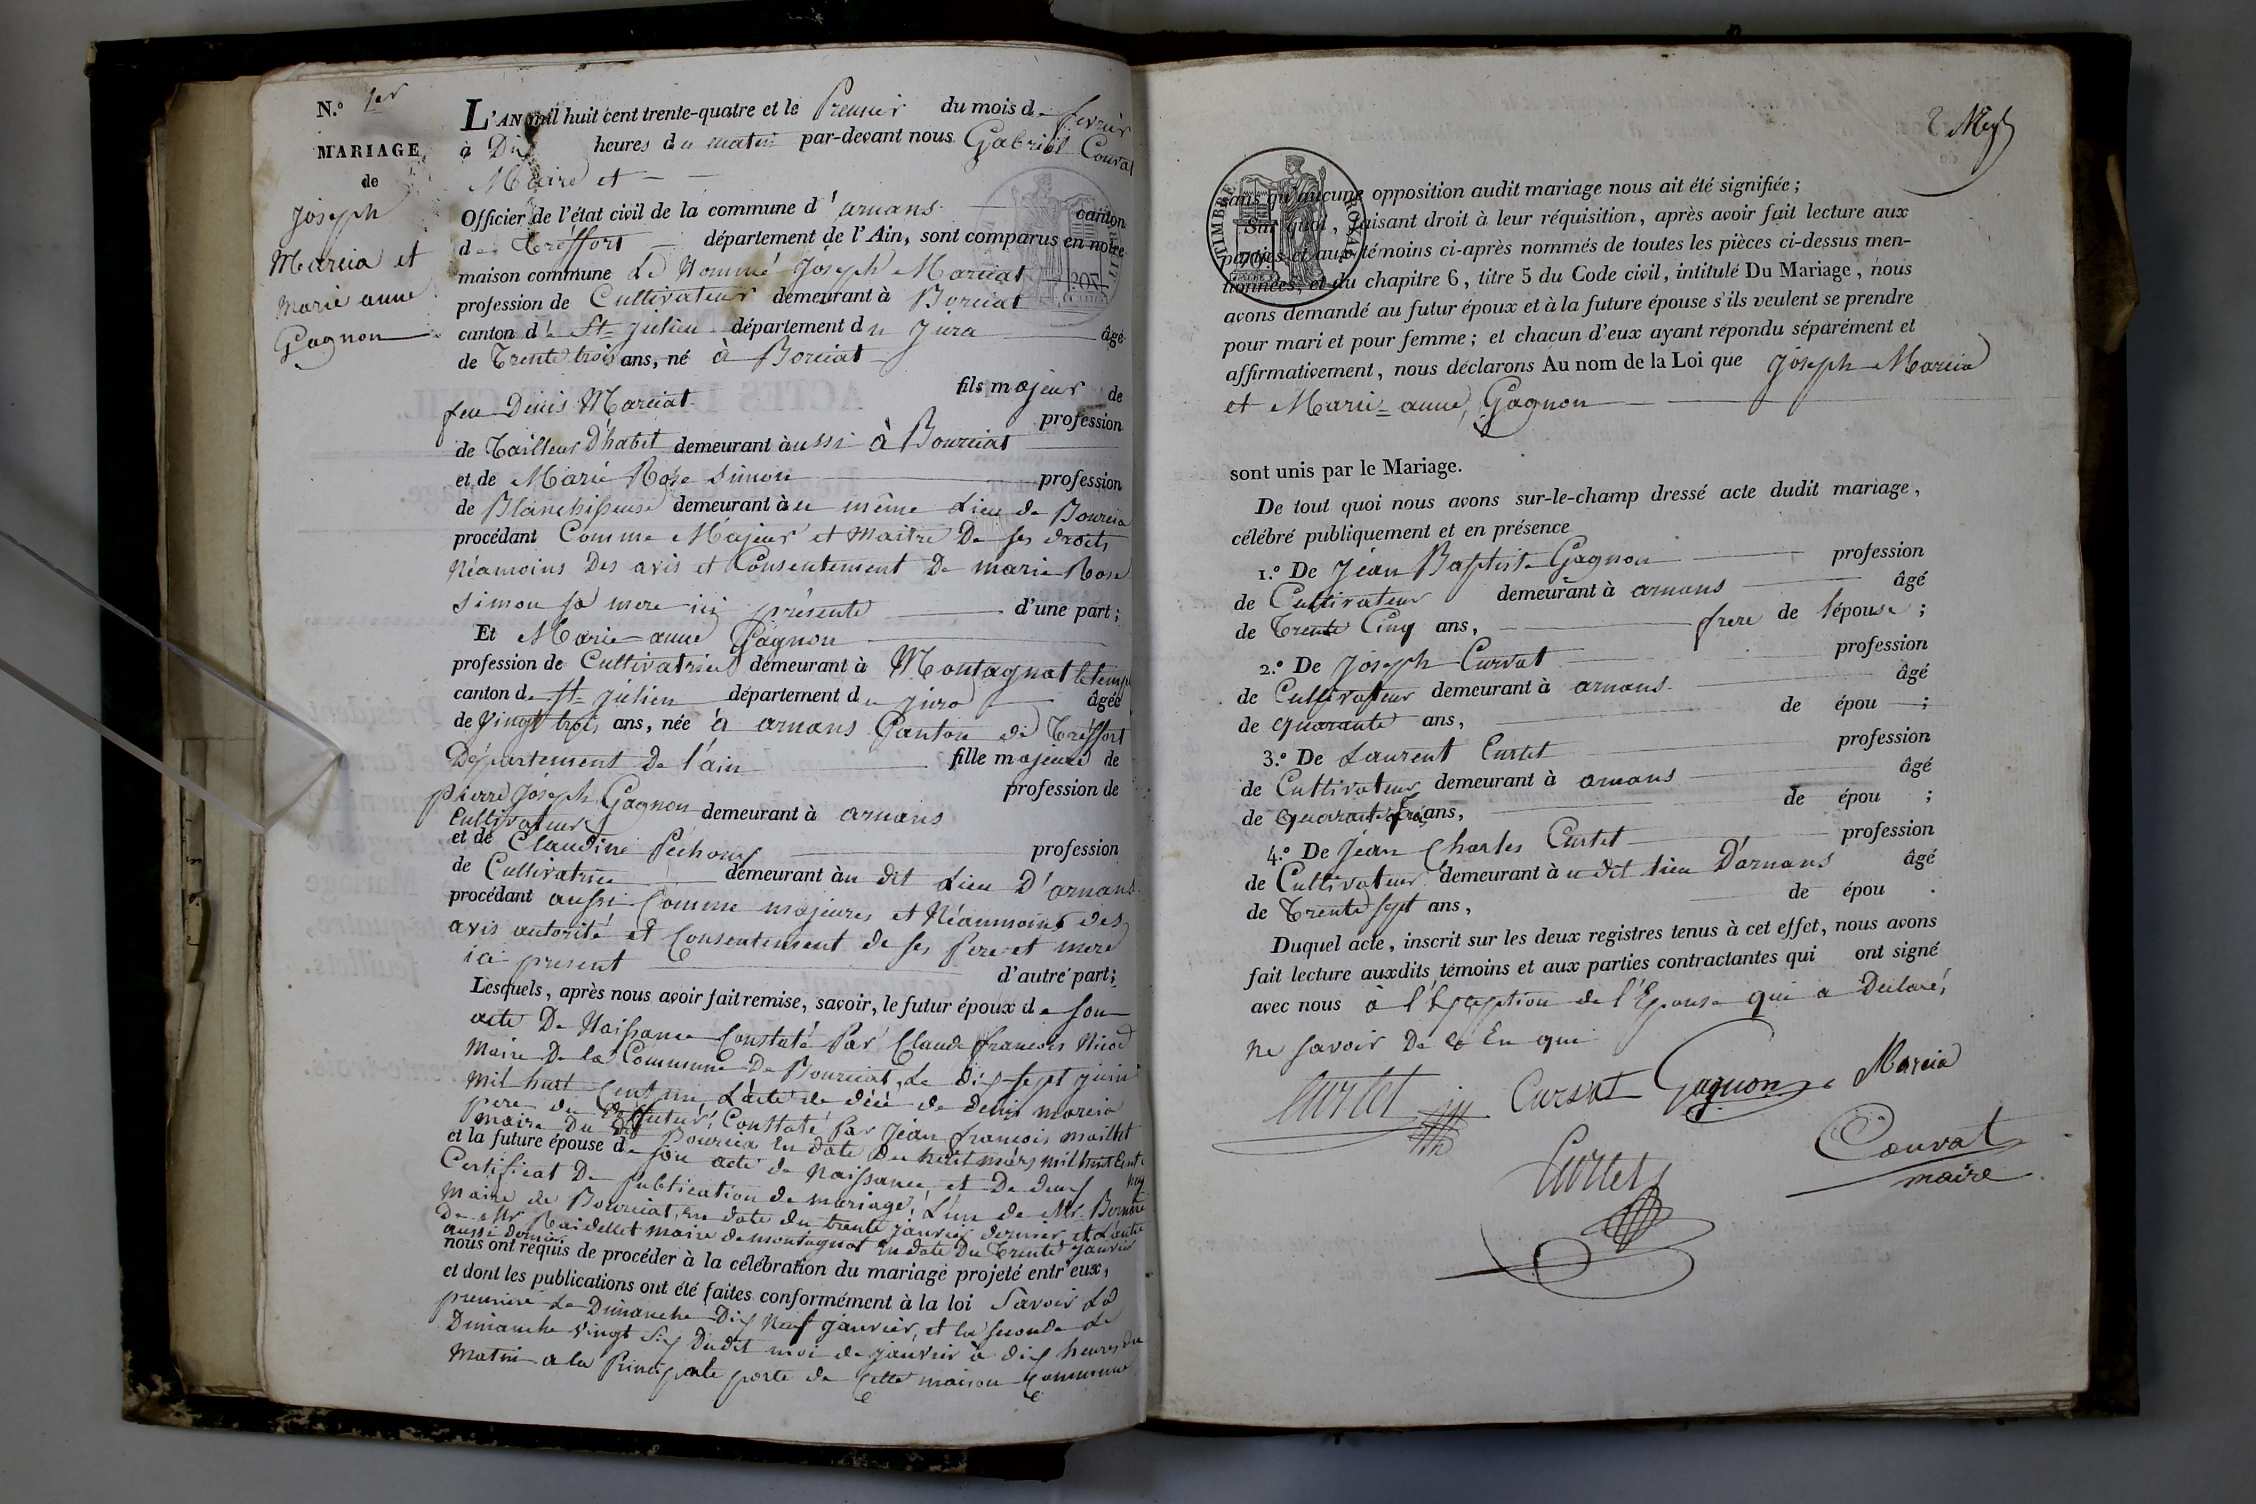 N.° 1er
MARIAGE
de
Joseph
Marcia et
Marie anne
Gagnon
L'AN mil huit cent trente-quatre et le Premier du mois de fevrier
à Dix heures du matin par-devant nous Gabriel Couvat
Maire et
Officier de l'état civil de la commune d'arnans canton
de Tréffort département de l'Ain, sont comparus en notre
maison commune Le Nommé Joseph Marciat
profession de Cultivateur demeurant à Borciat
canton de St julien département du jura âgé
de Trente trois ans, né à Borciat
fils majeur de
feu Denis Marciat profession
de Tailleur D'habit demeurant aussi à Bourciat
et de Marie Rose Simon profession
de Blanchisseuse demeurant au même Lieu de Bourcia
procédant Comme Majeur et maitre De ses droits
Néamoins Des avis et Consentement De marie Rose
Simon sa mere ici présente d'une part;
Et Marie-anne Gagnon
profession de Cultivatrice demeurant à Montagnat le temp
canton de St julien département du jura âgée
de vingt trois ans, née à arnans Canton de Tréffort
Département De l'ain fille majeure de
pierre joseph Gagnon profession de
Cultivateur demeurant à arnans
et de Claudine Péchoux profession
de Cultivatrice demeurant au dit Lieu D'arnans
procédant aussi Comme majeures et Néanmoins des
avis autorité et Consentement de ses Pere et mere
ici présent d'autre part;
Lesquels, après nous avoir fait remise, savoir, le futur époux de son
acte De Naissance Constaté Par Claude francois Nicod
Maire De la Commune De Bourciat, Le dix sept juin
mil huit Cent un, L'acte de décè de denis marcia
pere du futur, Constaté par Jean francois maillet
maire Du dit Bourcia En date Du huit mars mil huit Cent
et la future épouse de son acte de Naissance et De deux
Certificat De publication de mariage, L'un de Mr.
Maire de Bourciat, En date du trente janvier dernier et L'autre
De Mr Raidellet maire de montagnat En date Du Trente janvier
aussi dernier
nous ont requis de procéder à la célébration du mariage projeté entr'eux,
et dont les publications ont été faites conformément à la loi Savoir La
premiere Le Dimanche Dix Neuf janvier, et la seconde Le
Dimanche vingt Six Dudit moi de janvier à dix heures du
Matin a la Principale porte de Cette maison Commune
TIMBRE ROYAL
sans qu'aucune opposition audit mariage nous ait été signifiée;
Sur quoi, faisant droit à leur réquisition, après avoir fait lecture aux
parties et aux témoins ci-après nommés de toutes les pièces ci-dessus men-
tionnées, et du chapitre 6, titre 5 du Code civil, intitulé Du Mariage, nous
avons demandé au futur époux et à la future épouse s'ils veulent se prendre
pour mari et pour femme; et chacun d'eux ayant répondu séparément et
affirmativement, nous déclarons Au nom de la Loi que Joseph Marcia
et Marie-anne Gagnon
sont unis par le Mariage.
De tout quoi nous avons sur-le-champ dressé acte dudit mariage,
célébré publiquement et en présence
1.° De Jean Baptiste Gagnon profession
de Cultivateur demeurant à arnans âgé
de Trente Cinq ans, frere de l'épouse;
2.° De Joseph Curvat profession
de Cultivateur demeurant à arnans âgé
de quarante ans, de épou ;
3.° De Laurent Curtet profession
de Cultivateur demeurant à arnans âgé
de quarante trois ans, de épou ;
4.° De Jean Charles Curtet profession
de Cultivateur demeurant au dit lieu D'arnans âgé
de Trente sept ans, de épou .
Duquel acte, inscrit sur les deux registres tenus à cet effet, nous avons
fait lecture auxdits témoins et aux parties contractantes qui ont signé
avec nous à l'Exception de l'Epouse qui a Déclaré,
ne savoir De ce En qui
Curtet Cursat Gagnon Marcia
Curtet Couvat
maire